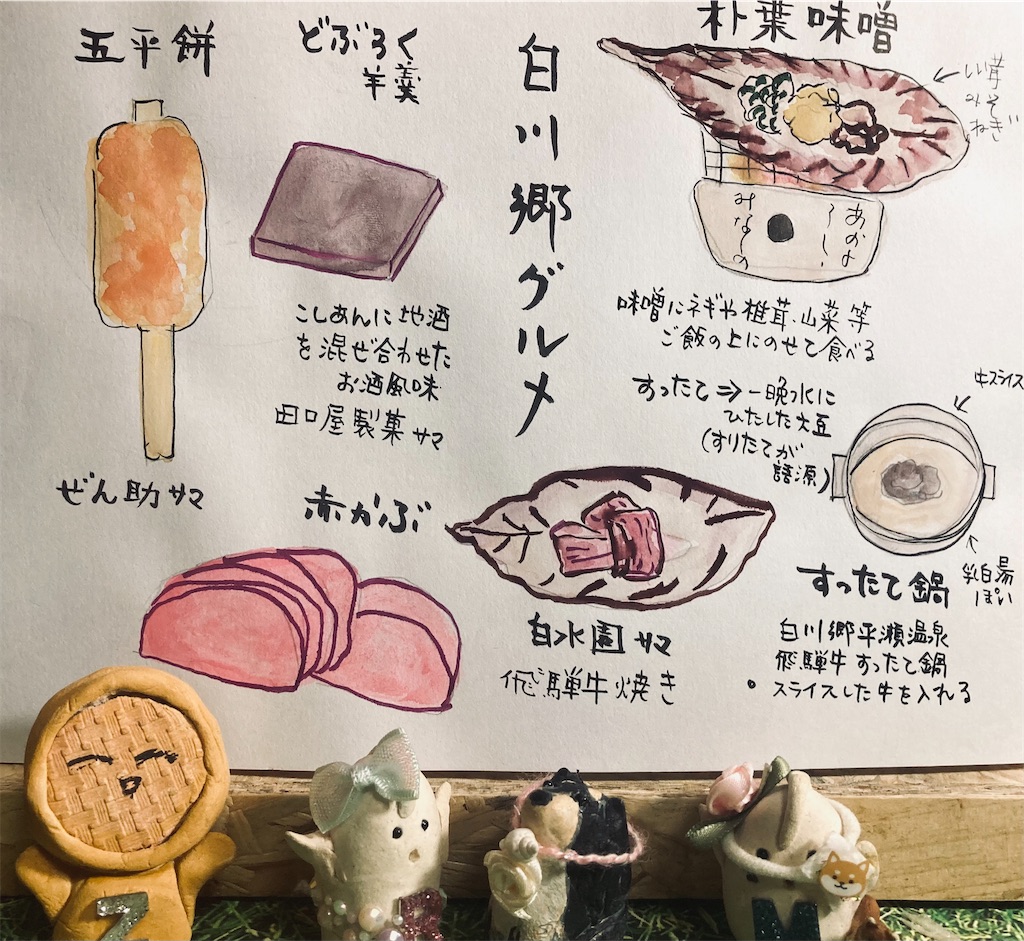 五平餅
ぜん助サマ
どぶろく
羊羹
こしあんに地酒
を混ぜ合わせた
お酒風味
田口屋製菓サマ
白川郷グルメ
朴葉味噌
みそ
ねぎ
みな〜の
味噌にネギや椎茸、山菜等
ご飯の上にのせて食べる
すったて⇒一晩水に
ひたした大豆
(すりたてが
語源)
牛スライス
乳白湯
ぽい
すったて鍋
白川郷平瀬温泉
飛騨牛すったて鍋
スライスした牛を入れる
赤かぶ
白水園サマ
飛騨牛焼き
Z
M